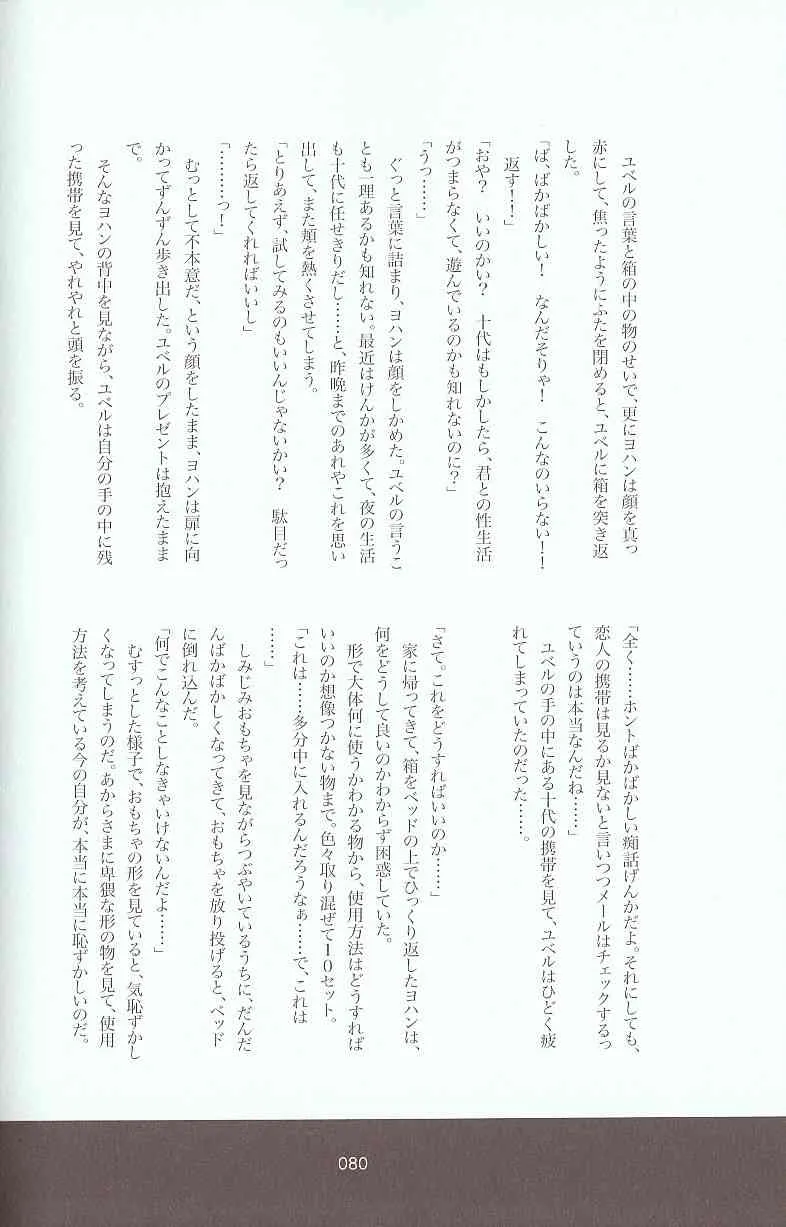 ユベルの言葉と箱の中の物のせいで、更にヨハンは顔を真っ
赤にして、焦ったようにふたを閉めると、ユベルに箱を突き返
した。
「ば、ばかばかしい！　なんだそりゃ！　こんなのいらない！！
　返す！！」
「おや？　いいのかい？　十代はもしかしたら、君との性生活
がつまらなくて、遊んでいるのかも知れないのに？」
「うっ……」
　ぐっと言葉に詰まり、ヨハンは顔をしかめた。ユベルの言うこ
とも一理あるかも知れない。最近はけんかが多くて、夜の生活
も十代に任せきりだし……と、昨晩までのあれやこれを思い
出して、また頬を熱くさせてしまう。
「とりあえず、試してみるのもいいんじゃないかい？　駄目だっ
たら返してくれればいいし」
「………っ！」
　むっとして不本意だ、という顔をしたまま、ヨハンは扉に向
かってずんずん歩き出した。ユベルのプレゼントは抱えたまま
で。
　そんなヨハンの背中を見ながら、ユベルは自分の手の中に残
った携帯を見て、やれやれと頭を振る。
「全く……ホントばかばかしい痴話げんかだよ。それにしても、
恋人の携帯は見るか見ないと言いつつメールはチェックするっ
ていうのは本当なんだね……」
　ユベルの手の中にある十代の携帯を見て、ユベルはひどく疲
れてしまっていたのだった……。
「さて。これをどうすればいいのか……」
　家に帰ってきて、箱をベッドの上でひっくり返したヨハンは、
何をどうして良いのかわからず困惑していた。
　形で大体何に使うかわかる物から、使用方法はどうすれば
いいのか想像つかない物まで。色々取り混ぜて10セット。
「これは……多分中に入れるんだろうなぁ……で、これは
……」
　しみじみおもちゃを見ながらつぶやいているうちに、だんだ
んばかばかしくなってきて、おもちゃを放り投げると、ベッド
に倒れ込んだ。
「何でこんなことしなきゃいけないんだよ……」
　むすっとした様子で、おもちゃの形を見ていると、気恥ずかし
くなってしまうのだ。あからさまに卑猥な形の物を見て、使用
方法を考えている今の自分が、本当に本当に恥ずかしいのだ。
080